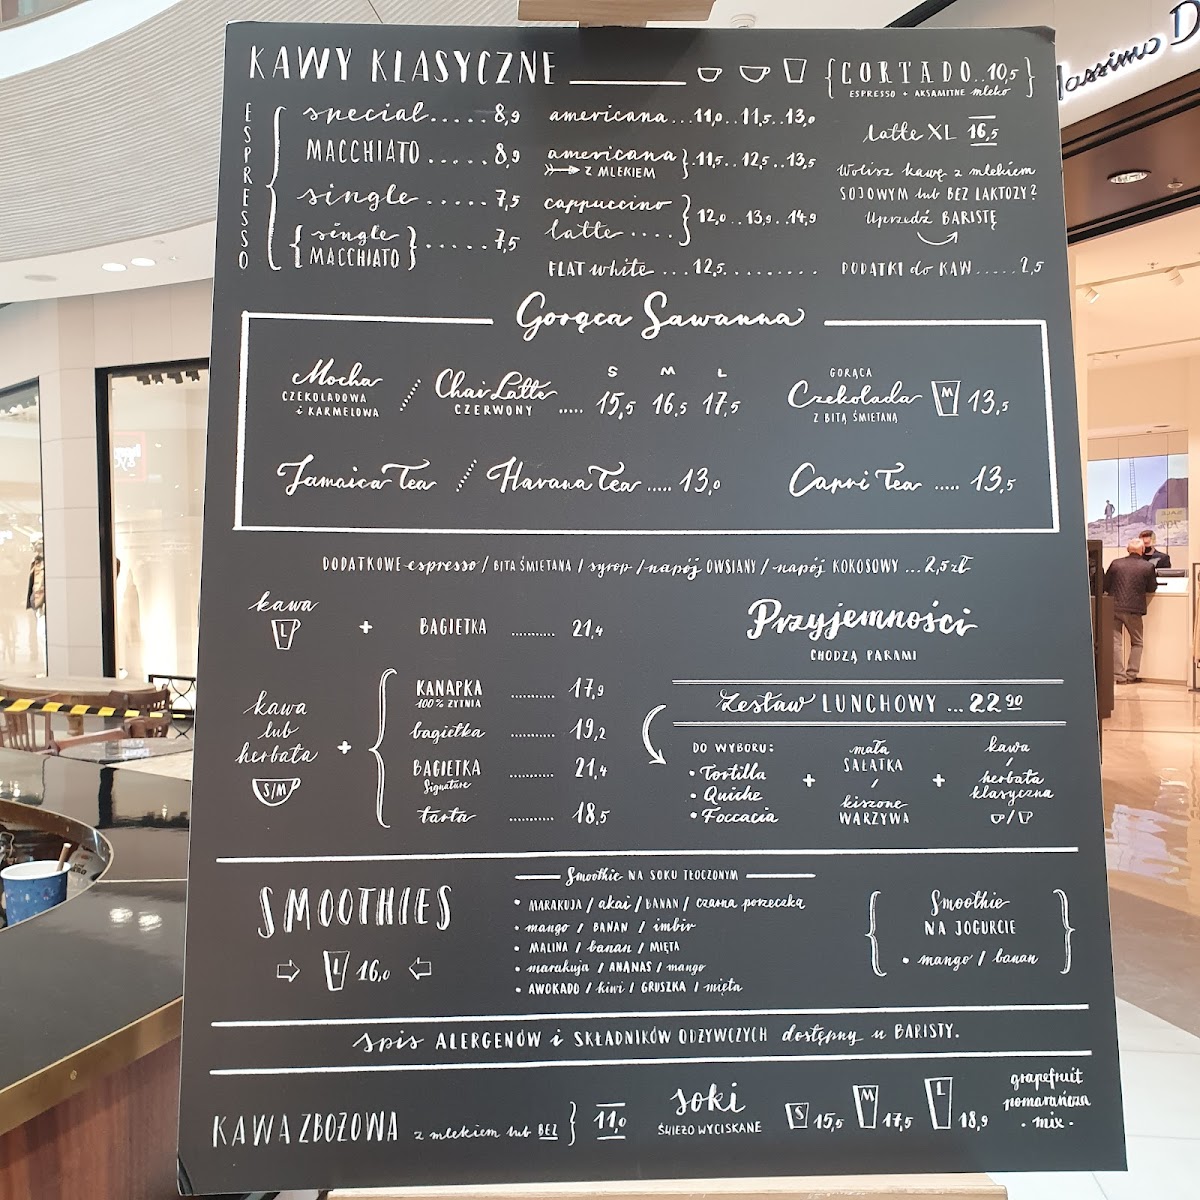 KAWY KLASYCZNE
{CORTADO..10,5}
ESPRESSO + AKSAMITNE mleko
Massimo D
ESPRESSO
special.....8,9
MACCHIATO.....8,9
single.....7,5
{single MACCHIATO}.....7,5
americana...11,0..11,5..13,0
americana
z MLEKIEM }..11,5..12,5..13,5
cappuccino
latte.... } 12,0..13,9..14,9
FLAT white...12,5.........
latte XL 16,5
Wolisz kawę z mlekiem
SOJOWYM lub BEZ LAKTOZY?
Uprzedź BARISTĘ
DODATKI do KAW.....2,5
Gorąca Sawanna
S M L
Mocha
CZEKOLADOWA
i KARMELOWA
Chai Latte
CZERWONY ..... 15,5 16,5 17,5
GORĄCA
Czekolada M 13,5
Z BITĄ ŚMIETANĄ
Jamaica Tea / Havana Tea ..... 13,0
Capri Tea ..... 13,5
DODATKOWE espresso / BITA ŚMIETANA / syrop / napój OWSIANY / napój KOKOSOWY ... 2,5 zł
kawa
L
+ BAGIETKA ........... 21,4
kawa
lub
herbata
S/M
+
KANAPKA ........... 17,9
100% ŻYTNIA
bagietka ........... 19,2
BAGIETKA ........... 21,4
Signature
tarta ........... 18,5
Przyjemności
CHODZĄ PARAMI
Zestaw LUNCHOWY ... 22 90
DO WYBORU:
• Tortilla
• Quiche
• Foccacia
+
mała
SAŁATKA
/
kiszone
WARZYWA
+
kawa
/
herbata
klasyczna
/
SMOOTHIES
L 16,0
Smoothie NA SOKU TŁOCZONYM
• MARAKUJA / akai / BANAN / czarna porzeczka
• mango / BANAN / imbir
• MALINA / banan / MIĘTA
• marakuja / ANANAS / mango
• AWOKADO / kiwi / GRUSZKA / mięta
Smoothie
NA JOGURCIE
• mango / banan
spis ALERGENÓW i SKŁADNIKÓW ODŻYWCZYCH dostępny u BARISTY.
KAWA ZBOŻOWA z mlekiem lub BEZ } 11,0
soki
ŚWIEŻO WYCISKANE
S 15,5 M 17,5 L 18,9
grapefruit
pomarańcza
· mix ·